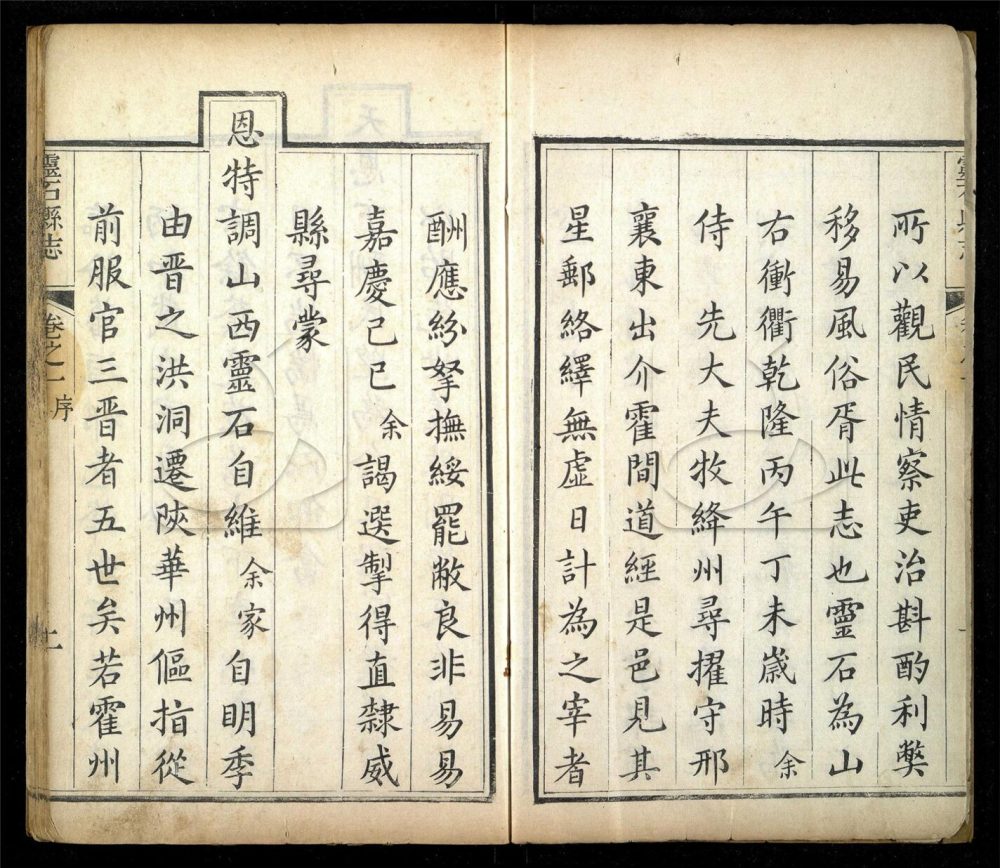 所以觀民情察吏治斟酌利獘
移易風俗胥此志也靈石為山
右衝衢乾隆丙午丁未嵗時余
侍　先大夫牧絳州尋擢守邢
襄東出介霍間道經是邑見其
星郵絡繹無虛日計為之宰者
酬應紛拏撫綏罷敝良非易易
嘉慶己巳余謁選掣得直隸威
縣尋蒙
恩特調山西靈石自維余家自明季
由晋之洪洞遷陝華州傴指從
前服官三晋者五世矣若霍州
靈石縣志
卷之一
序
二